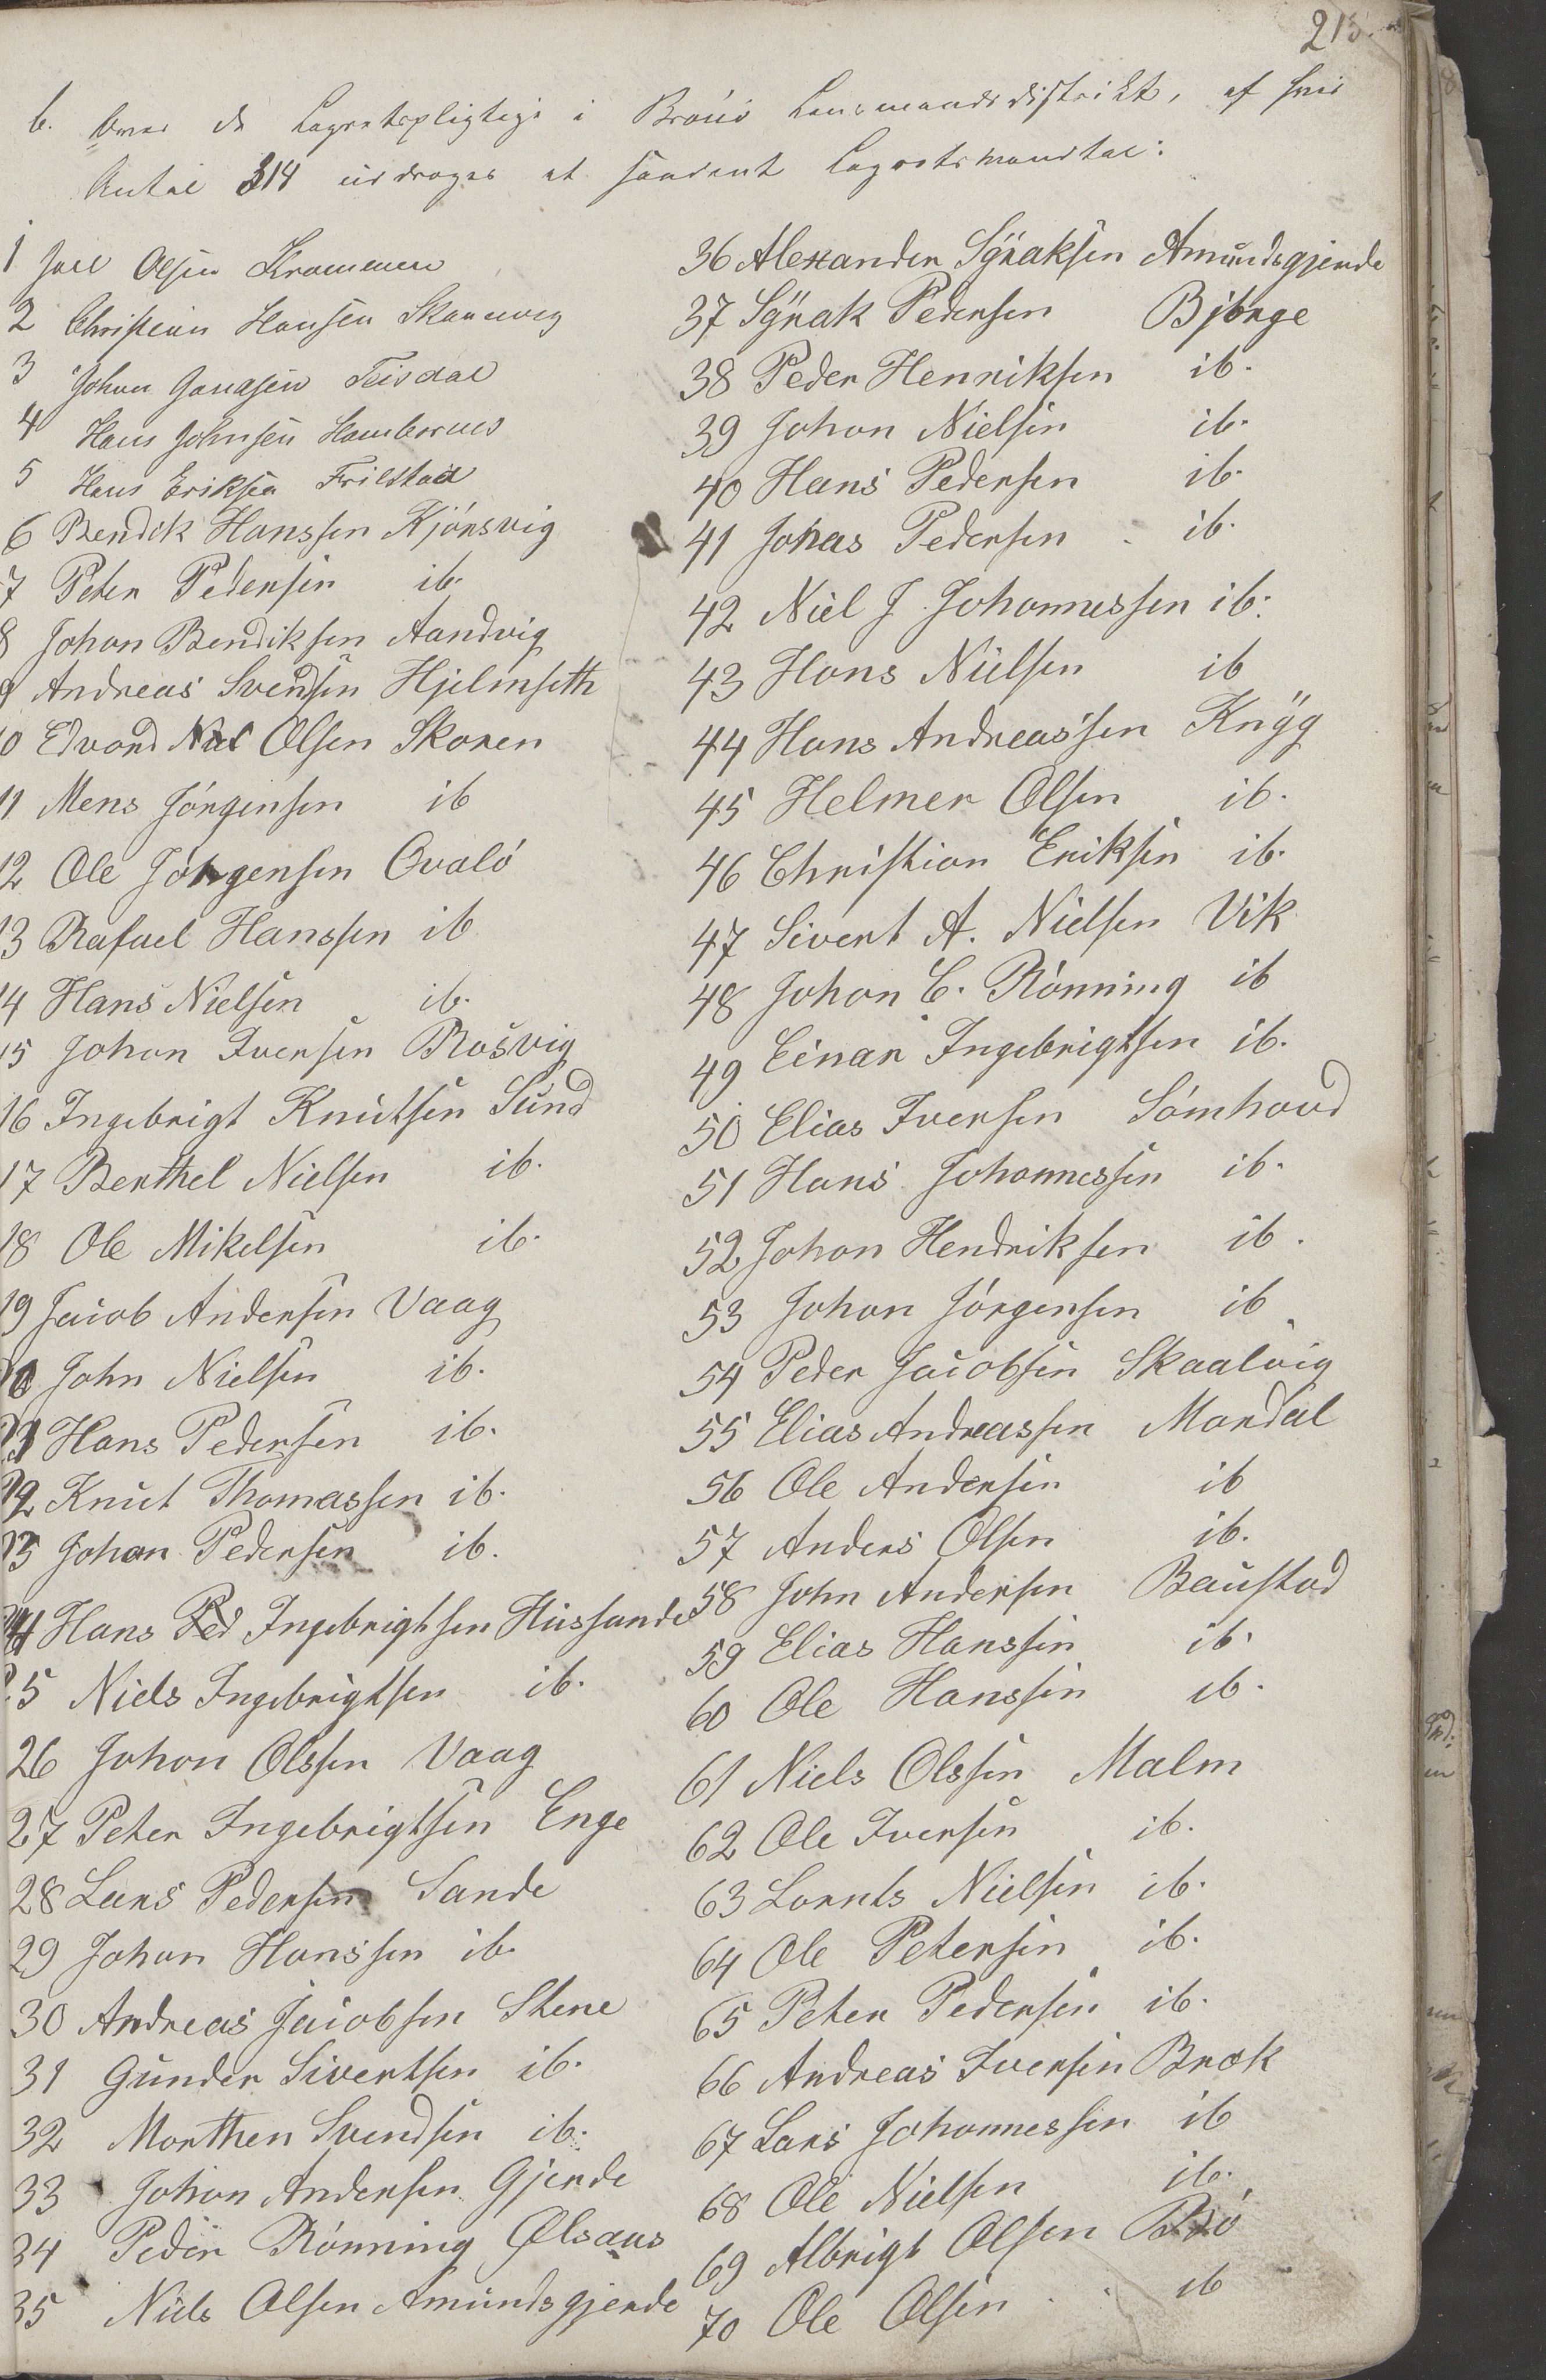 215.
b. Over de Lagretspligtige i Brönö Lensmandsdistrikt, af hvis
Antal 314 uddrages et saadant Lagretsmandtal:
1 Joel Olsen Krommen
2 Christian Hansen Skaanvig
3 Johan Jonassen Teisdal
4 Hans Johnsen Hambornes
5 Hans Eriksen Trilstad
6 Bendik Hanssen Kjónsvig
7 Peter Pedersen ib.
8 Johan Bendiksen Aandvig
9 Andreas Svendsen Hjelmseth
10 Edvard Olsen Skoren
11 Mens Jörgensen ib
12 Ole Jörgensen Qvaló
13 Rafael Hanssen ib
14 Hans Nielsen ib.
15 Johan Iversen Rosvig
16 Ingebrigt Knutsen Sund
17 Berthel Nielsen ib.
18 Ole Mikelsen ib.
19 Jacob Andersen Vaag
20 John Nielsen ib.
21 Hans Pedersen ib.
22 Knut Thomassen ib.
23 Johan Pedersen ib.
24 Hans Ped Ingebrigtsen Hussande
25 Niels Ingebrigtsen ib.
26 Johan Olssen Vaag
27 Peter Ingebrigtsen Enge
28 Lars Pedersen Sande
29 Johan Hanssen ib.
30 Andreas Jacobsen Stene
31 Gunder Sivertsen ib.
32 Morthen Svendsen ib.
33 Johan Andersen Gjerde
34 Peder Rönning Olsaus
35 Niels Olsen Amundsgjerde
36 Alexander Syraksen Amundsgjerde
37 Syrak Pedersen Bjorge
38 Peder Henriksen ib.
39 Johan Nielsen ib.
40 Hans Pedersen ib.
41 Johas Pedersen ib.
42 Niel J Johannessen ib.
43 Hans Nielsen ib
44 Hans Andreassen Knÿg
45 Helmer Olsen ib.
46 Christian Eriksen ib.
47 Sivert A. Nielsen Vik
48 Johan C. Rönning ib
49 Einar Ingebrigtsen ib.
50 Elias Iversen Sómhovd
51 Hans Johannessen ib.
52 Johan Hendriksen ib.
53 Johan Jörgensen ib
54 Peder Jacobsen Skaalvig
55 Elias Andreassen Mardal
56 Ole Andersen ib
57 Anders Olsen ib.
58 John Andersen Baustad
59 Elias Hanssen ib.
60 Ole Hanssen ib.
61 Niels Olssen Malm
62 Ole Iversen ib.
63 Lornts Nielsen ib.
64 Ole Petersen ib.
65 Peter Pedersen ib.
66 Andreas Iversen Bræk
67 Lars Johannessen ib
68 Ole Nielsen ib.
69 Albrigt Olsen Bró
70 Ole Olsen ib